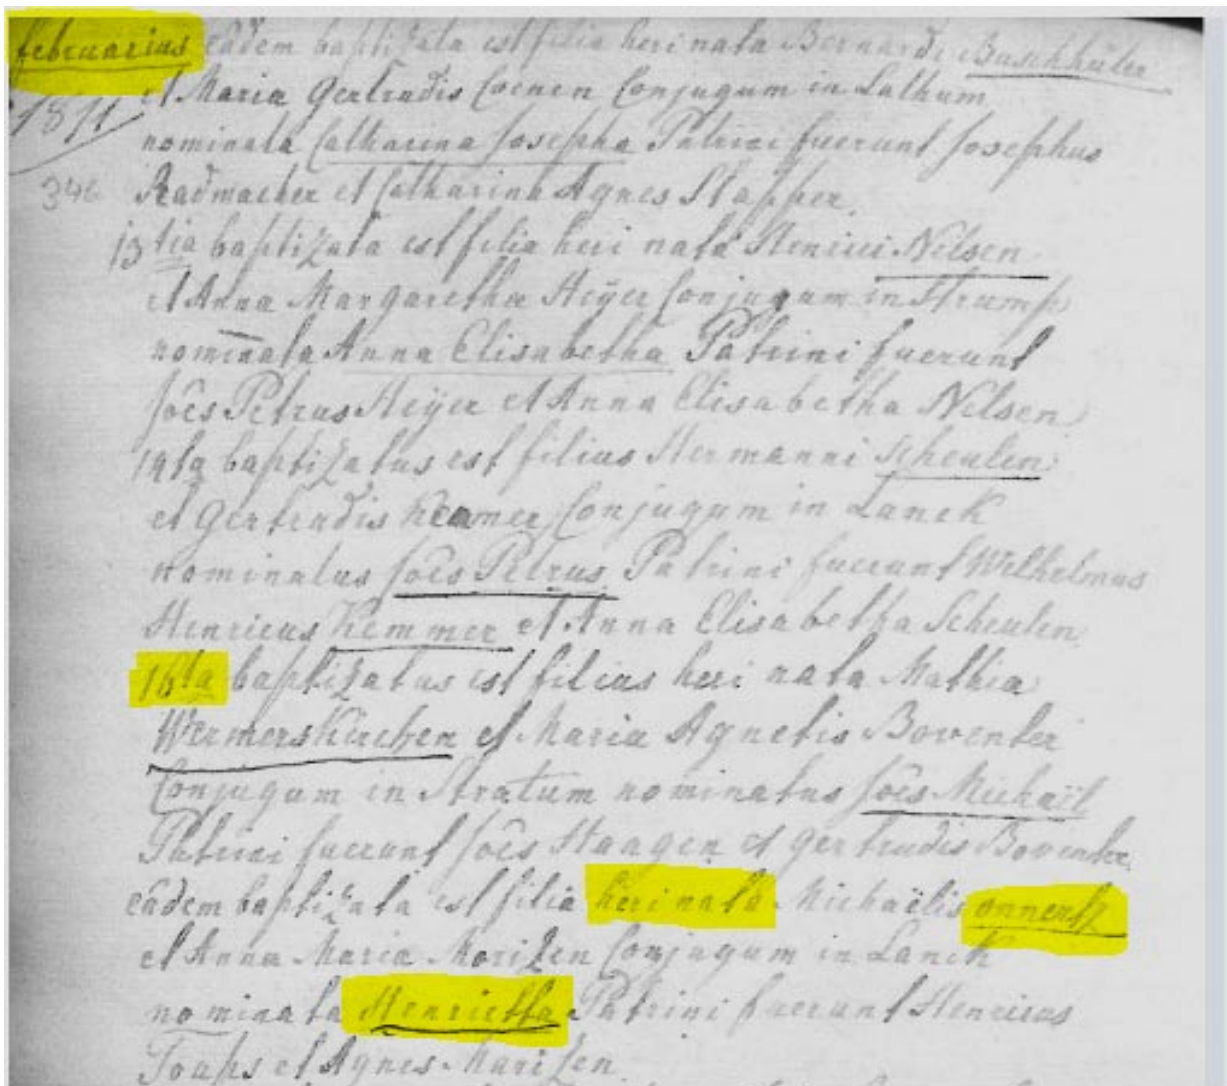 februarius eâdem baptizata est filia heri nata Bernardi Buschhüter
1811 et Maria Gertrudis Coenen Conjugum in Lathum
nominata Catharina Josepha Patrini fuerunt Josephus
346 Radmacher et Catharina Agnes Stapper
13tia baptizata est filia heri nata Henrici Nelsen
et Anna Margaretha Heÿer Conjugum in Strump
nominata Anna Elisabetha Patrini fuerunt
Joês Petrus Heÿer et Anna Elisabetha Nelsen
14ta baptizatus est filius Hermanni Scheulen
et Gertrudis Kemmer Conjugum in Lanck
nominatus Joês Petrus Patrini fuerunt Wilhelmus
Henricus Kemmer et Anna Elisabetha Scheulen
16ta baptizatus est filius heri nata Mathia
Wermerskirchen et Maria Agnetis Boventer
Conjugum in Stratum nominatus Joês Michaïl
Patrini fuerunt Joês Haagen et Gertrudis Boventer
eâdem baptizata est filia heri nata Michaëlis onnertz
et Anna Maria Moritzen Conjugum in Lanck
nominata Henrietta Patrini fuerunt Henricus
et Agnes